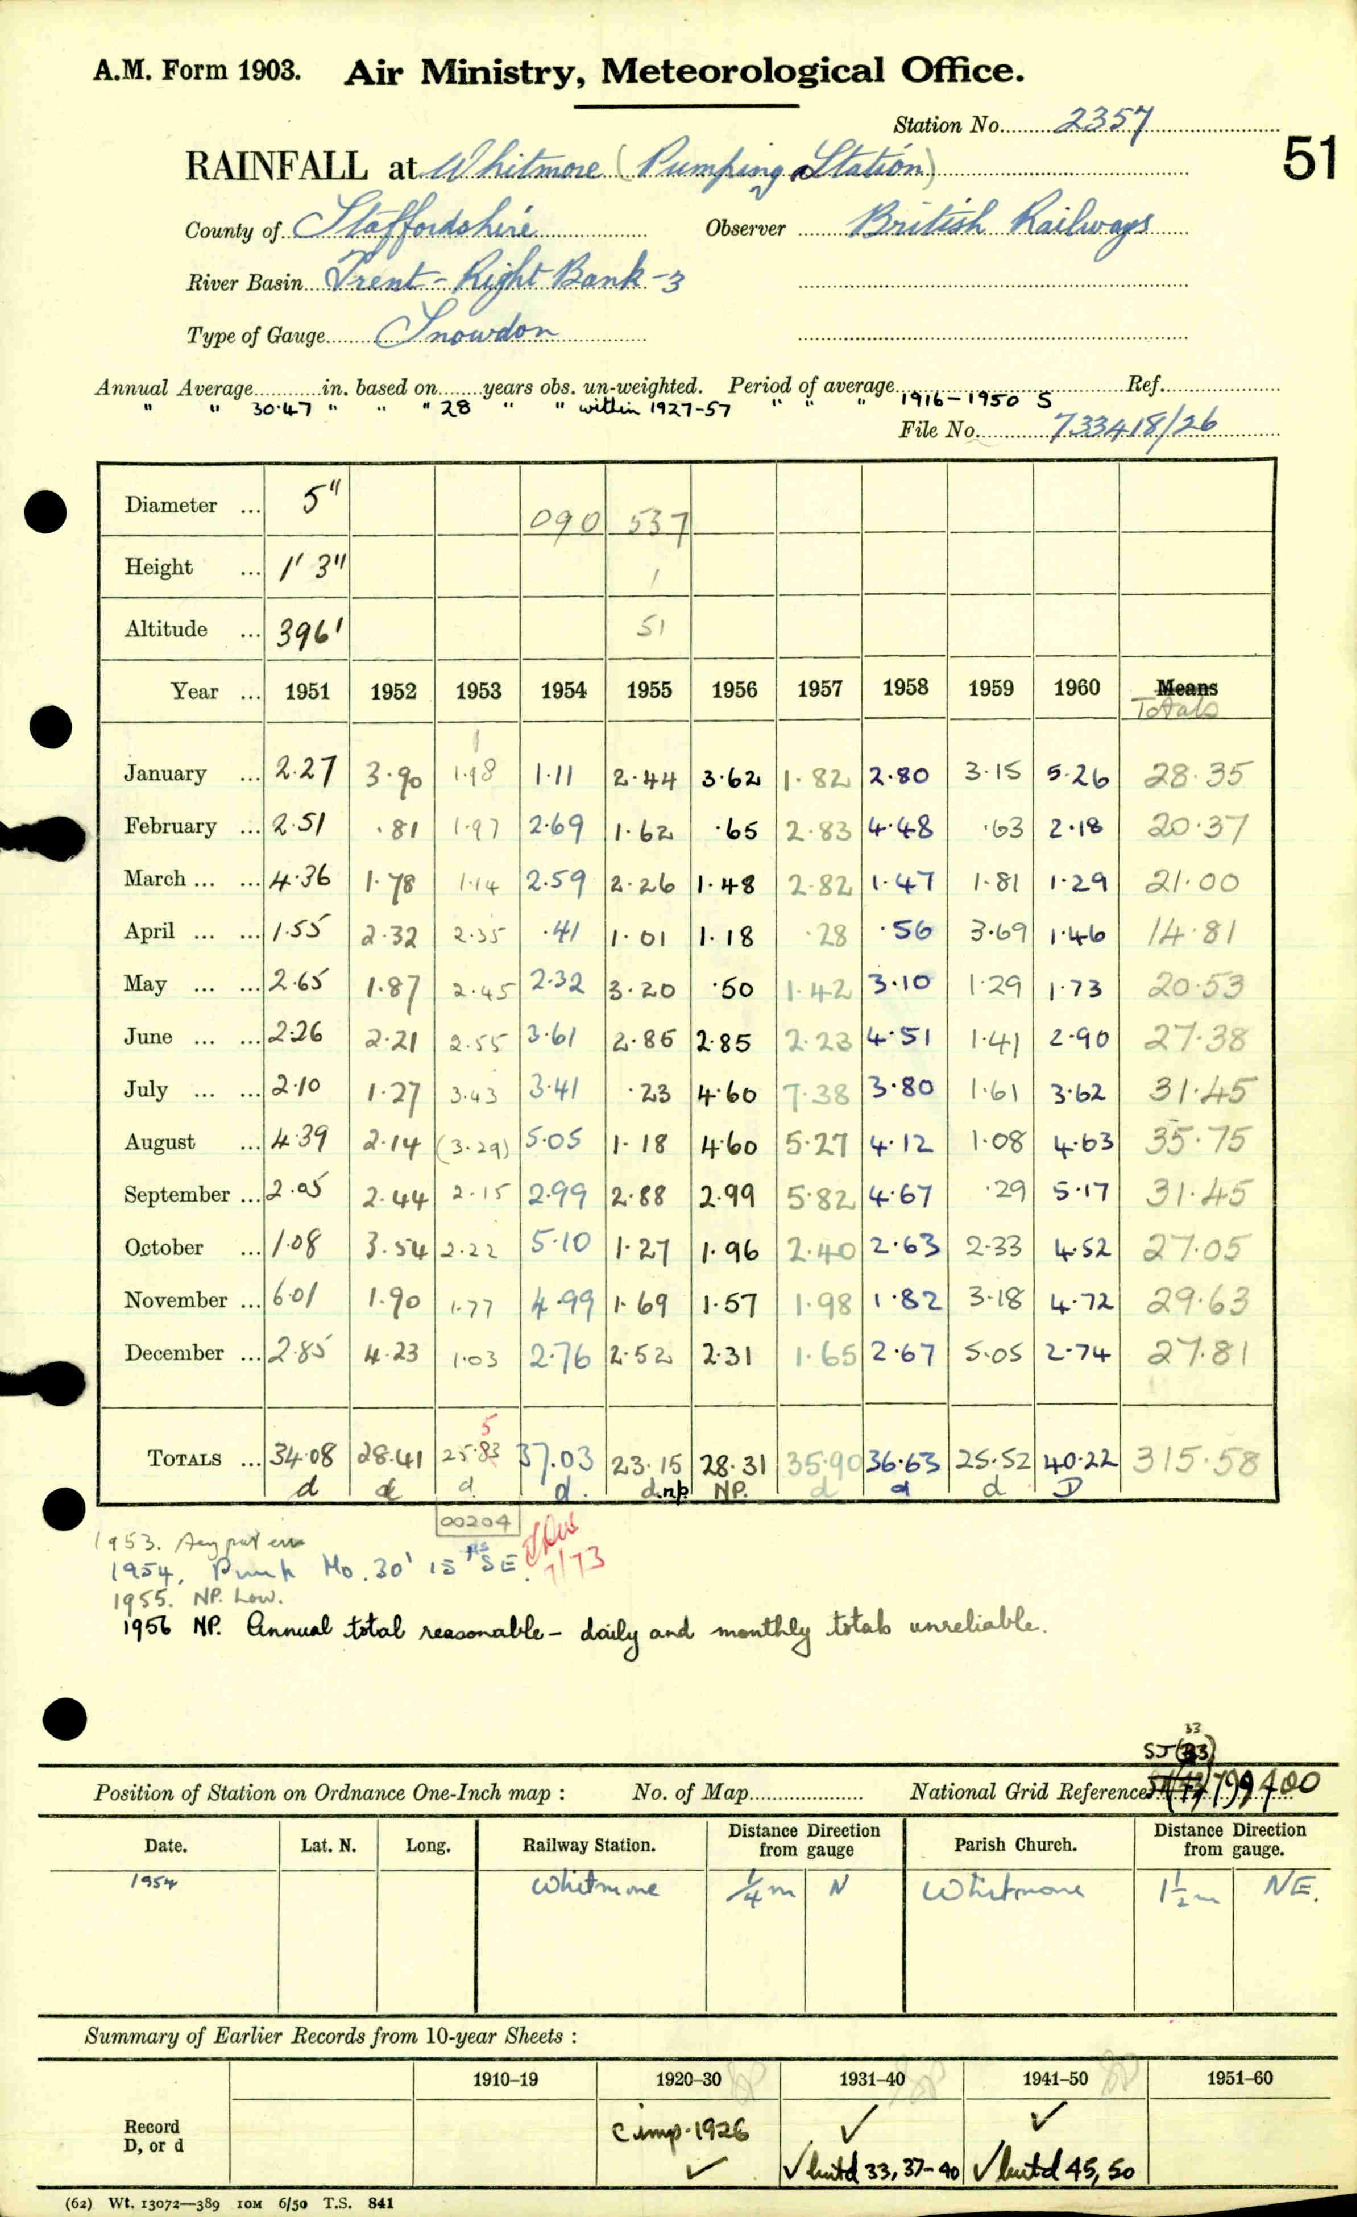 A.M. Form 1903. Air Ministry, Meteorological Office.
Station No. 2357
51
RAINFALL at Whitmore (Pumping Station)
County of Staffordshire Observer British Railways
River Basin Trent - Right Bank - 3
Type of Gauge Snowdon
Annual Average in. based on years obs. un-weighted. Period of average Ref.
" " 30.47 " " " 28 " " within 1927-57 " " " 1916-1950 S
File No. 733418/26
Diameter ... 5" 090 537
Height ... 1' 3" 1
Altitude ... 396' 51
Year ... 1951 1952 1953 1954 1955 1956 1957 1958 1959 1960 Means
Totals
January ... 2.27 3.90 1.98 1.11 2.44 3.62 1.82 2.80 3.15 5.26 28.35
February ... 2.51 .81 1.97 2.69 1.62 .65 2.83 4.48 .63 2.18 20.37
March ... ... 4.36 1.78 1.14 2.59 2.26 1.48 2.82 1.47 1.81 1.29 21.00
April ... ... 1.55 2.32 2.35 .41 1.01 1.18 .28 .56 3.69 1.46 14.81
May ... ... 2.65 1.87 2.45 2.32 3.20 .50 1.42 3.10 1.29 1.73 20.53
June ... ... 2.26 2.21 2.55 3.61 2.86 2.85 2.23 4.51 1.41 2.90 27.38
July ... ... 2.10 1.27 3.43 3.41 .23 4.60 7.38 3.80 1.61 3.62 31.45
August ... 4.39 2.14 (3.29) 5.05 1.18 4.60 5.27 4.12 1.08 4.63 35.75
September ... 2.05 2.44 2.15 2.99 2.88 2.99 5.82 4.67 .29 5.17 31.45
October ... 1.08 3.54 2.22 5.10 1.27 1.96 2.40 2.63 2.33 4.52 27.05
November ... 6.01 1.90 1.77 4.99 1.69 1.57 1.98 1.82 3.18 4.72 29.63
December ... 2.85 4.23 1.03 2.76 2.52 2.31 1.65 2.67 5.05 2.74 27.81
5
TOTALS ... 34.08 28.41 25.83 37.03 23.15 28.31 35.90 36.63 25.52 40.22 315.58
d d d d. d.np. NP. d d d D
00204
1953. Aug
1954, Pump Ho. 30' 15 SE.
7/73
1955. NP. Low.
1956 NP. Annual total reasonable - daily and monthly totals unreliable.
33
SJ (33)
Position of Station on Ordnance One-Inch map : No. of Map National Grid Reference 799400
Date. Lat. N. Long. Railway Station. Distance Direction from gauge Parish Church. Distance Direction from gauge.
1954 Whitmore 1/4 m N Whitmore 1 1/2 m NE.
Summary of Earlier Records from 10-year Sheets :
1910-19 1920-30 1931-40 1941-50 1951-60
Record D, or d c imp. 1926 ✓ ✓ ✓
✓ but d 33, 37-40 ✓ but d 45, 50
(62) Wt. 13072—389 10M 6/50 T.S. 841